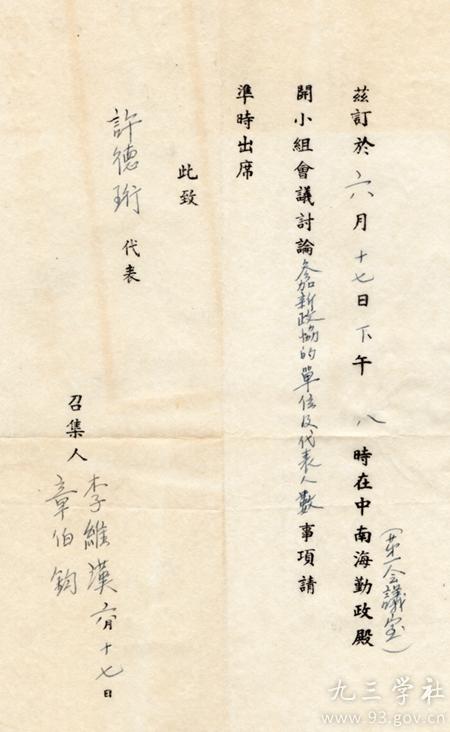 茲訂於六月十七日下午八時在中南海勤政殿
（第一会議室）
開小組會議討論參加新政協的單位及代表人數事項請
準時出席
此致
許德珩代表
召集人李維漢
章伯鈞
六月十七日
九三学社
www.93.gov.cn